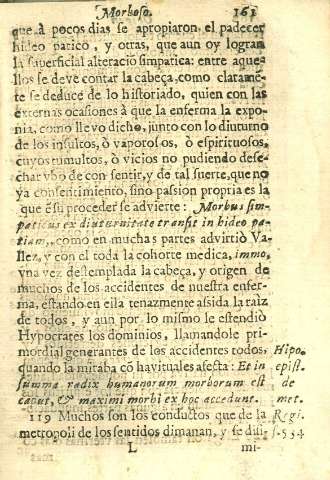 Morboso. 161
que à pocos dias se apropiaron el padecer
hideo patico, y otras, que aun oy logran
la superficial alteraciò simpatica: entre aque-
llos se deve contar la cabeça, como claramẽ-
te se deduce de lo historiado, quien con las
externas ocasiones à que la enferma la expo-
nia, como llevo dicho, junto con lo diuturno
de los insultos, ò vaporosos, ò espirituosos,
cuyos tumultos, ò vicios no pudiendo dese-
char vbo de con sentir, y de tal suerte, que no
ya consentimiento, sino passion propria es la
que ẽ su proceder se advierte: Morbus sim-
paticus ex diuturnitate transit in hideo pa-
tiam, como en muchas partes advirtiò Va-
llez, y con el toda la cohorte medica, immo,
vna vez destemplada la cabeça, y origen de
muchos de los accidentes de nuestra enfer-
ma, estando en ella tenazmente asida la raiz
de todos, y aun por lo mismo le estendiò
Hypocrates los dominios, llamandole pri-
mordial generantes de los accidentes todos,
quando la miraba cõ havituales afecta: Et in
summa radix humanorum morborum est
caput, & maximi morbi ex hoc accedunt.
Hipo.
epist.
de
met.
119 Muchos son los conductos que de la
metropoli de los sentidos dimanan, y se dis-
Regi.
f. 534
L mi-